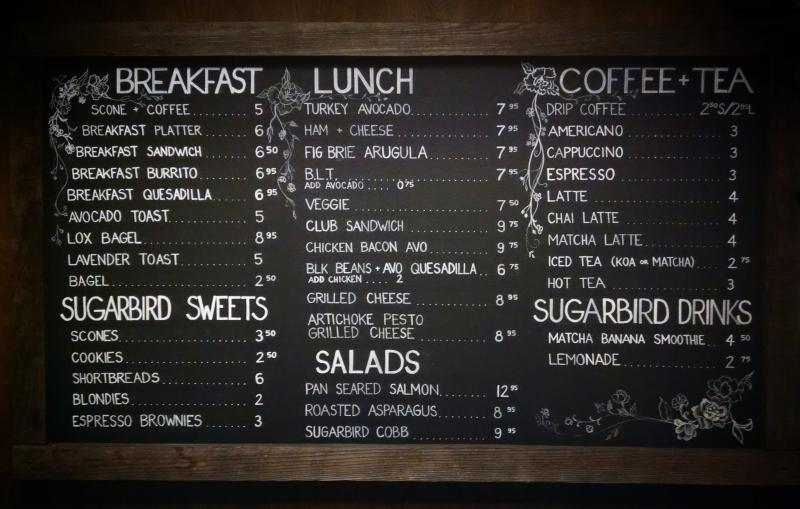 BREAKFAST
SCONE + COFFEE 5
BREAKFAST PLATTER 6
BREAKFAST SANDWICH 6 50
BREAKFAST BURRITO 6 95
BREAKFAST QUESADILLA 6 95
AVOCADO TOAST 5
LOX BAGEL 8 95
LAVENDER TOAST 5
BAGEL 2 50
SUGARBIRD SWEETS
SCONES 3 50
COOKIES 2 50
SHORTBREADS 6
BLONDIES 2
ESPRESSO BROWNIES 3
LUNCH
TURKEY AVOCADO 7 95
HAM + CHEESE 7 95
FIG BRIE ARUGULA 7 95
B.L.T. 7 95
ADD AVOCADO .... 0 75
VEGGIE 7 50
CLUB SANDWICH 9 75
CHICKEN BACON AVO 9 75
BLK BEANS + AVO QUESADILLA 6 75
ADD CHICKEN .... 2
GRILLED CHEESE 8 95
ARTICHOKE PESTO
GRILLED CHEESE 8 95
SALADS
PAN SEARED SALMON 12 95
ROASTED ASPARAGUS 8 95
SUGARBIRD COBB 9 95
COFFEE + TEA
DRIP COFFEE 2 50 S/2 95 L
AMERICANO 3
CAPPUCCINO 3
ESPRESSO 3
LATTE 4
CHAI LATTE 4
MATCHA LATTE 4
ICED TEA (KOA OR MATCHA) 2 75
HOT TEA 3
SUGARBIRD DRINKS
MATCHA BANANA SMOOTHIE 4 50
LEMONADE 2 75